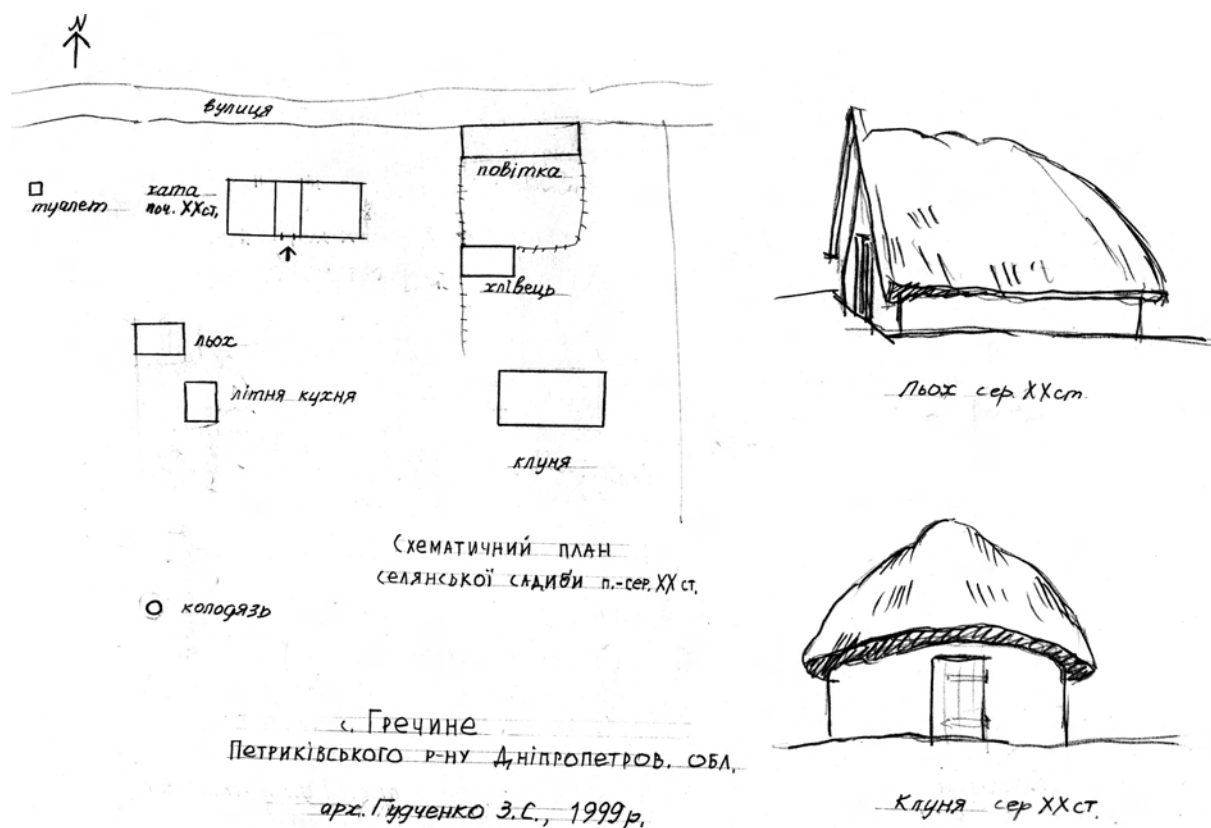 N
вулиця
повітка
туалет
хата
поч. XXст.
хлівець
льох
літня кухня
клуня
Схематичний план
селянської садиби п.-сер. XX ст.
колодязь
с. Гречине
Петриківського р-ну Дніпропетров. обл.
арх. Гудченко З.С., 1999р.
Льох сер. XXст.
Клуня сер XXст.